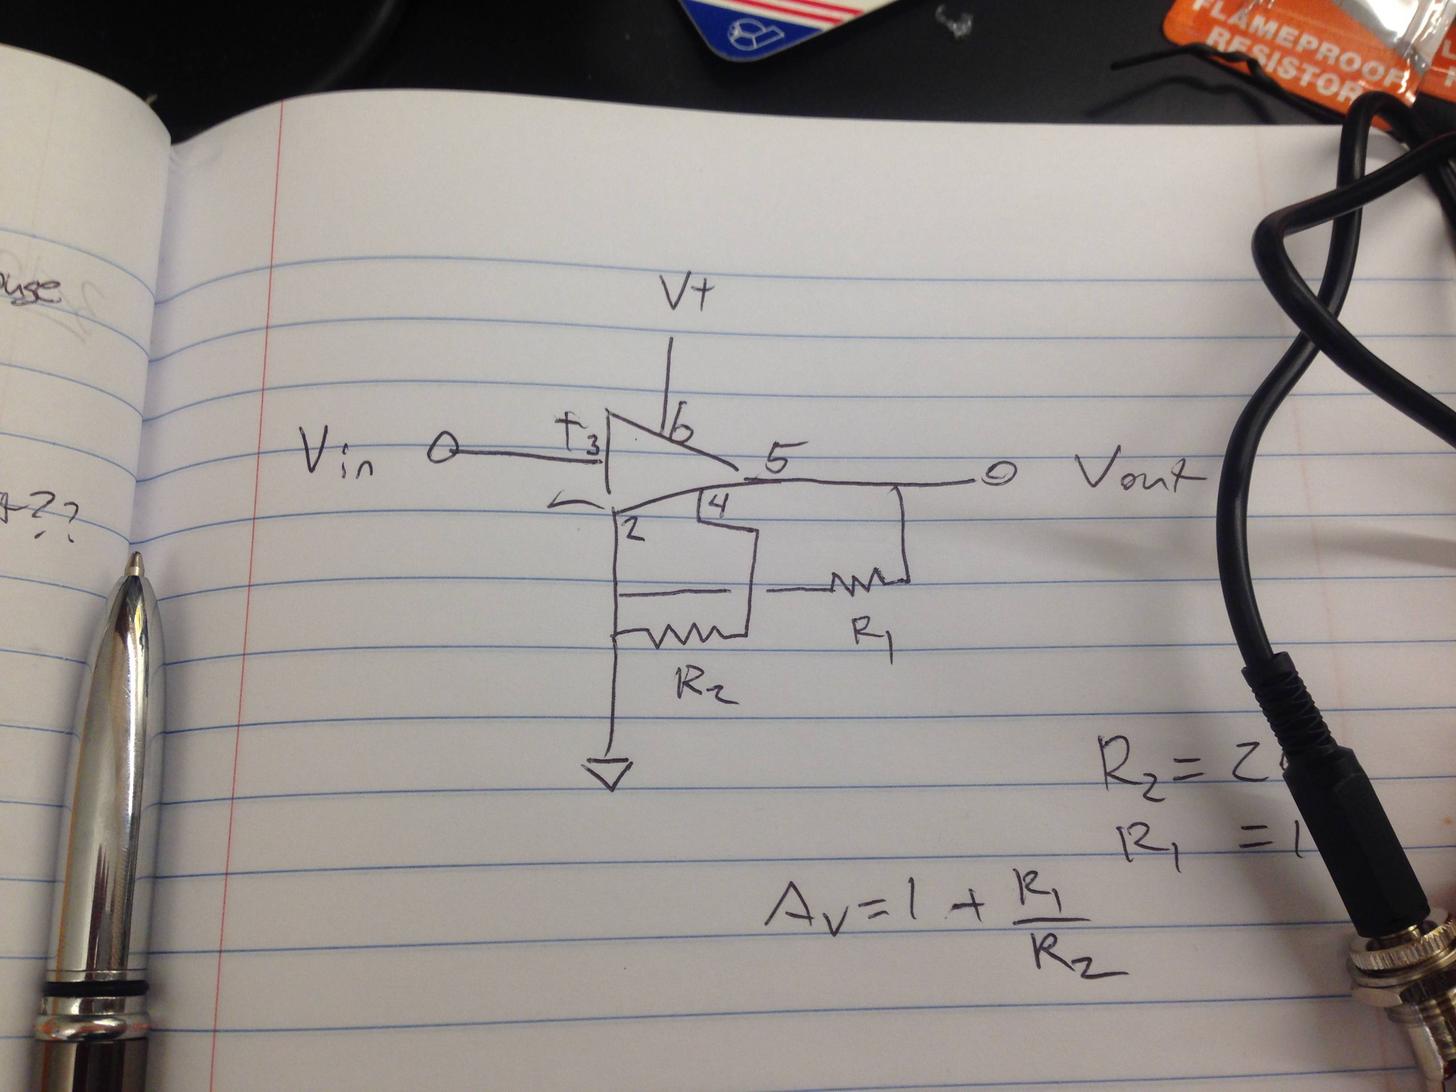 FLAMEPROOF
RESISTOR
V+
6
Vin + 3 5 Vout
-
2 4
R1
R2
R2 = 2
R1 = 1
Av = 1 + R1/R2
??